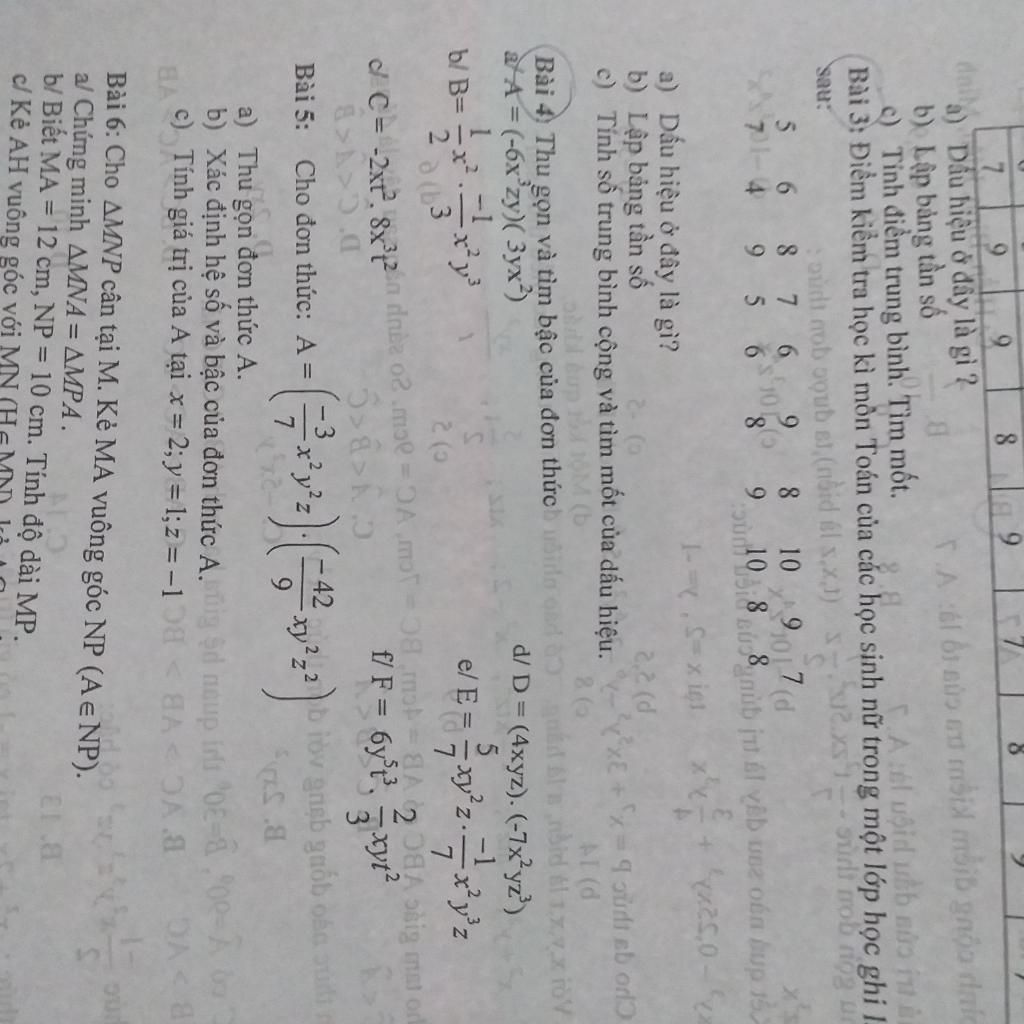 7 9 9 8 9 7 8 9
a) Dấu hiệu ở đây là gì ?
b) Lập bảng tần số
c) Tính điểm trung bình. Tìm mốt.
Bài 3: Điểm kiểm tra học kì môn Toán của các học sinh nữ trong một lớp học ghi
sau:
5 6 8 7 6 9 8 10 9 7
7 4 9 5 6 8 9 10 8 8
a) Dấu hiệu ở đây là gì?
b) Lập bảng tần số
c) Tính số trung bình cộng và tìm mốt của dấu hiệu.
Bài 4: Thu gọn và tìm bậc của đơn thức
a/ A = (-6x³zy)( 3yx²) d/ D = (4xyz). (-7x²yz³)
b/ B= 1/2 x² . -1/3 x² y³ e/ E = 5/7 xy² z . -1/7 x² y³ z
c/ C = -2xt² . 8x³t² f/ F = 6y⁵t³. 2/3 xyt²
Bài 5: Cho đơn thức: A = (-3/7 x² y² z) . (-42/9 xy² z²)
a) Thu gọn đơn thức A.
b) Xác định hệ số và bậc của đơn thức A.
c) Tính giá trị của A tại x = 2; y = 1; z = −1
Bài 6: Cho ΔMNP cân tại M. Kẻ MA vuông góc NP (A ∈ NP).
a/ Chứng minh ΔMNA = ΔMPA .
b/ Biết MA = 12 cm, NP = 10 cm. Tính độ dài MP.
c/ Kẻ AH vuông góc với MN (H∈MN)